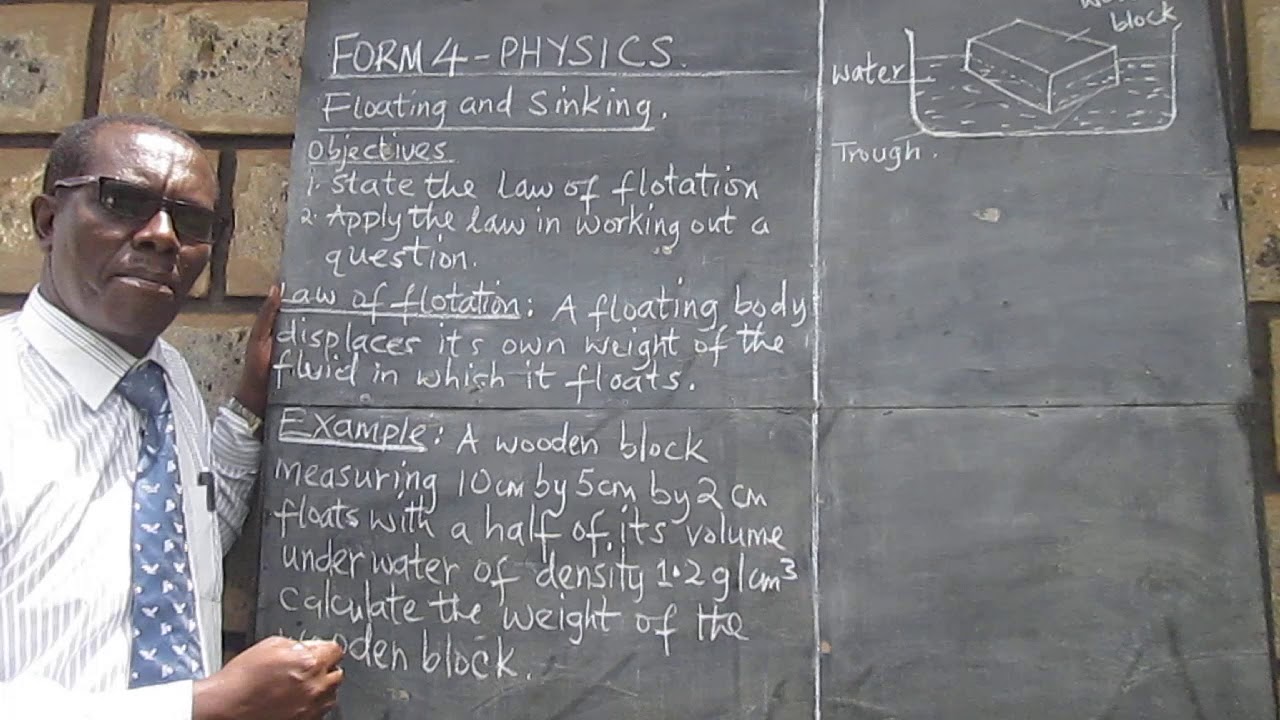 FORM 4 - PHYSICS.
Floating and Sinking.
Objectives
1. State the Law of flotation
2. Apply the law in working out a
question.
Law of flotation: A floating body
displaces its own weight of the
fluid in which it floats.
Example: A wooden block
measuring 10cm by 5cm by 2cm
floats with a half of its volume
under water of density 1.2g/cm³
Calculate the weight of the
wooden block.
block
water
Trough.